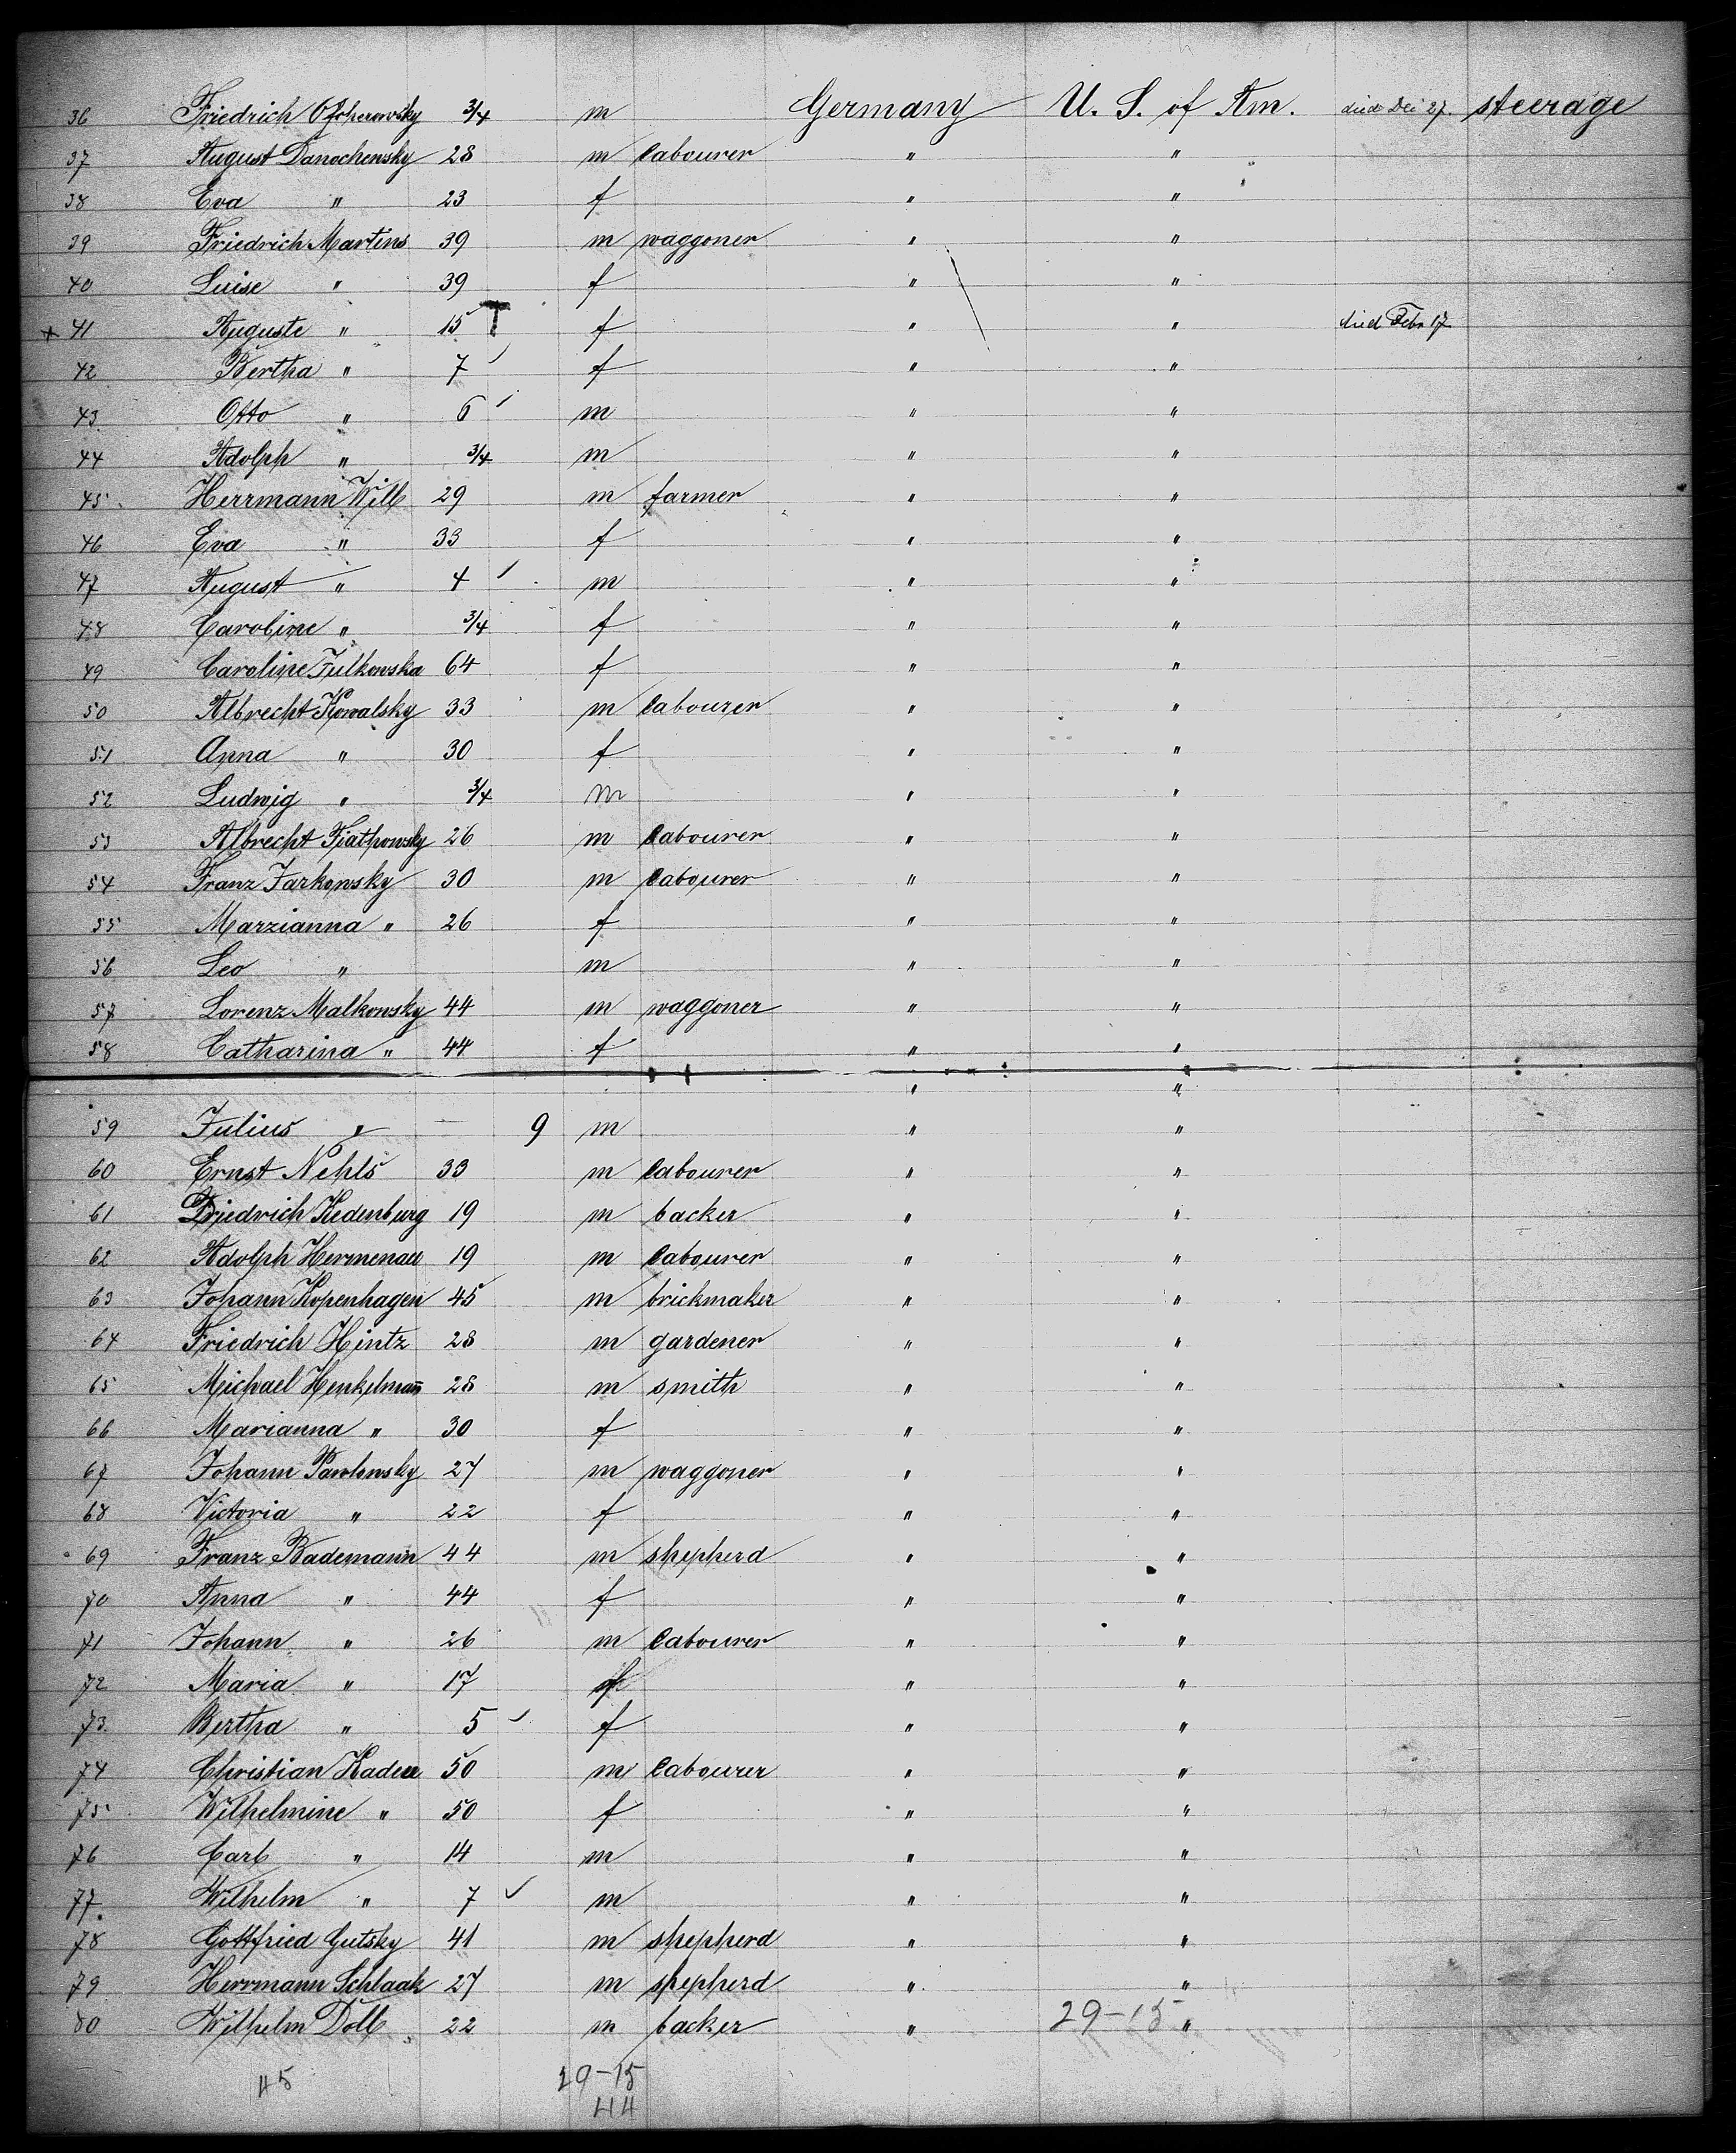 36 Friedrich Ofscherowsky 3/4 m Germany U. S. of Am. died Dec 27. steerage
37 August Danochewsky 28 m labourer " "
38 Eva " 23 f " "
39 Friedrich Martens 39 m waggoner " "
40 Luise " 39 f " "
x 41 Auguste " 15 T f " " died Febr 17
42 Bertha " 7 ✓ f " "
43. Otto " 6 ✓ m " "
44 Adolph " 3/4 m " "
45 Herrmann Will 29 m farmer " "
46 Eva " 33 f " "
47 August " 4 ✓ m " "
48 Caroline " 3/4 f " "
49 Caroline Julkowska 64 f " "
50 Albrecht Kowalsky 33 m labourer " "
51 Anna " 30 f " "
52 Ludwig " 3/4 m " "
53 Albrecht 26 m labourer " "
54 Franz Jarkowsky 30 m labourer " "
55 Marzianna " 26 f " "
56 Leo " m " "
57 Lorenz Malkowsky 44 m waggoner " "
58 Catharina " 44 f " "
" "
59 Julius " 9 m " "
60 Ernst Nehls 33 m labourer " "
61 Friedrich Kedenburg 19 m backer " "
62 Adolph Hermenau 19 m labourer " "
63 Johann Kopenhagen 45 m brickmaker " "
64 Friedrich Hintz 28 m gardener " "
65 Michael Henkelmann 28 m smith " "
66 Marianna " 30 f " "
67 Johann Pawlowsky 27 m waggoner " "
68 Victoria " 22 f " "
69 Franz Bademann 44 m shepherd " "
70 Anna " 44 f " "
71 Johann " 26 m labourer " "
72 Maria " 17 f " "
73. Bertha " 5 ✓ f " "
74 Christian Radeu 50 m labourer " "
75 Wilhelmine " 50 f " "
76 Carl " 14 m " "
77. Wilhelm " 7 ✓ m " "
78 Gottfried Gutsky 41 m shepherd " "
79 Herrmann Schlaak 27 m shepherd " "
80 Wilhelm Doll 22 m backer " 29-15 "
45 29-15
44